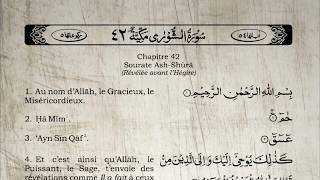 سُوْرَةُ الشُّوْرٰى مَكِّيَّةٌ ٤٢
Chapitre 42
Sourate Ash-Shūrā
(Révélée avant l'Hégire)
1. Au nom d'Allāh, le Gracieux, le Miséricordieux.
بِسْمِ اللّٰهِ الرَّحْمٰنِ الرَّحِيْمِ
2. Ḥā Mīm
حٰمٓ
3. 'Ayn Sīn Qāf
عٓسٓقٓ
4. Et c'est ainsi qu'Allāh, le
Puissant, le Sage, t'envoie des
révélations comme Il a fait à ceux
كَذٰلِكَ يُوْحِيْٓ اِلَيْكَ وَاِلَى الَّذِيْنَ مِنْ